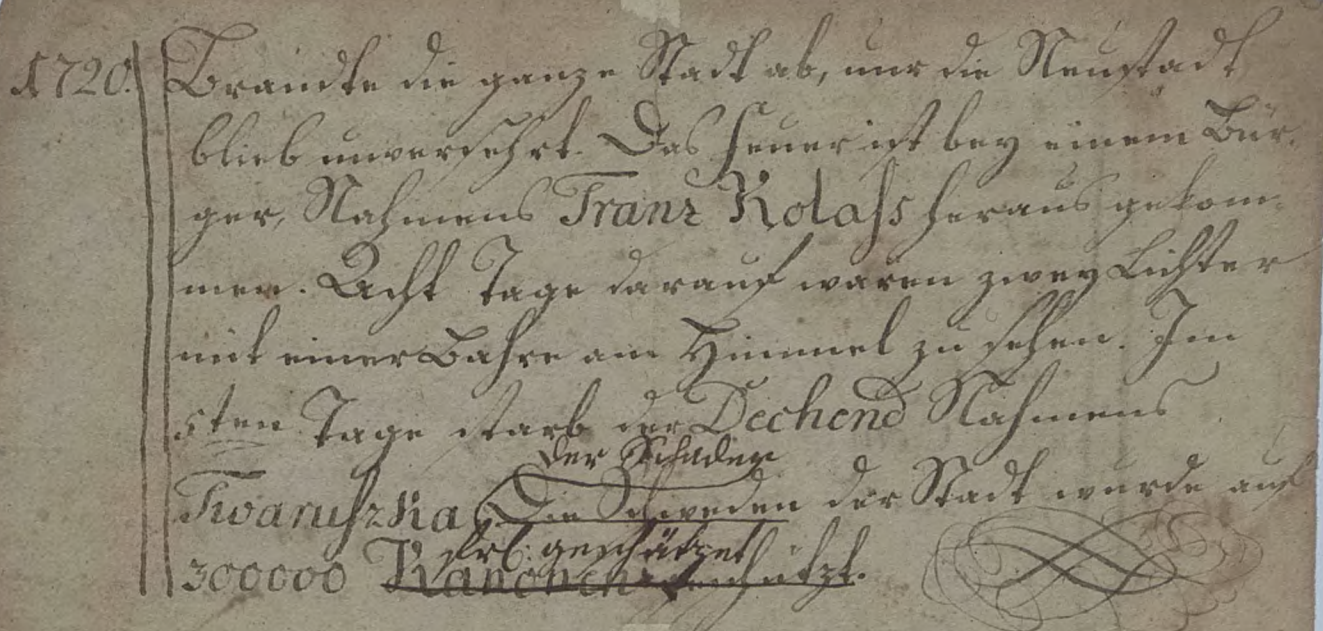 1720. Brandte die ganze Stadt ab, nur die Neustadt
blieb unversehrt. Das Feuer ist bey einem Bür,
ger, Nahmens Franz Kolass heraus gekom=
men. Acht Tage darauf waren zwey Lichter
mit einer Bahre am Himmel zu sehen. Im
5ten Tage starb der Dechend Nahmens
der Schaden
Twaruszka Die Schweden der Stadt wurde auf
Frl: geschätzet
300000 Kanonen geschätzt.